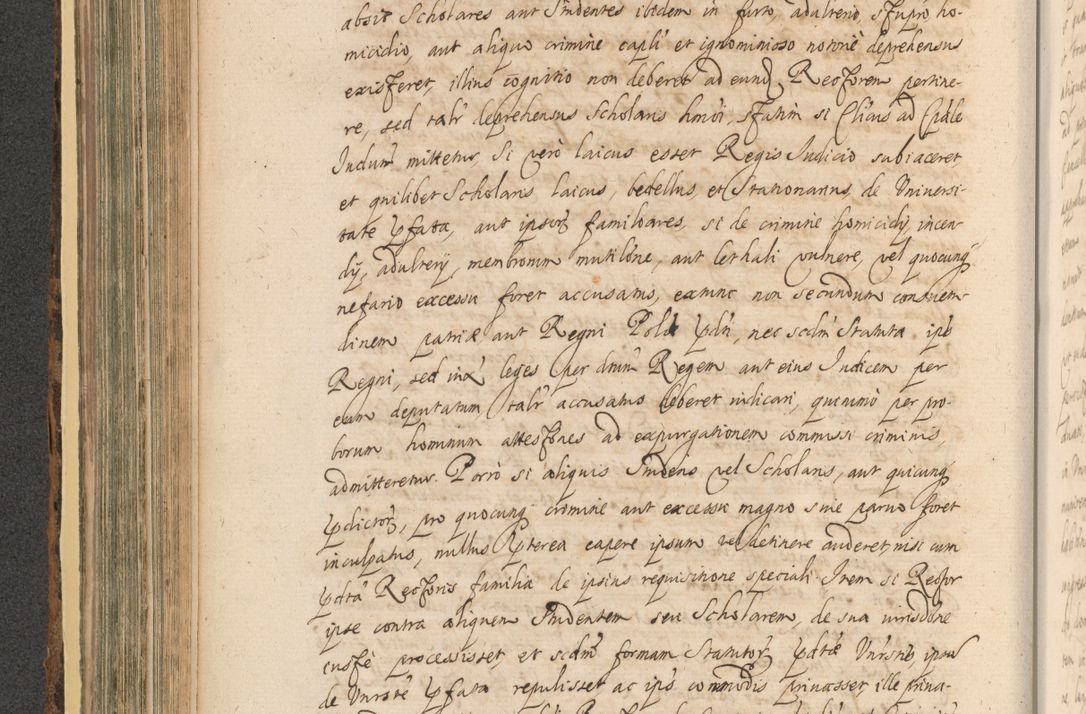 absit Scholares aut Studentes ibidem in furto, adulterio, stupro ho-
micidio, aut aliquo crimine capli et ignominioso notoriè deprehensus
existeret, illius cognitio non deberet ad eundẽ Rectorem pertine-
re, sed talr deprehensus Scholaris hmõi, statim si Clicus ad Epale
Iudum mittetur, Si verò laicus esset Regis Iudicio subiaceret,
et quilibet Scholaris laicus, bedellus, et Stationarius, de Universi-
tate pfata, aut ipsorẽ familiares, si de crimine homicidij, incen-
dij, adulterij, membrorum mutilõne, aut lethali vulnere, vel quocunq
nefario excessu foret accusatus, extunc non secundum consuetu-
dinem patriæ aut Regni Polæ pdti, nec scdm Statuta ips
Regni, sed iux leges per dnum Regem aut eius Iudicem per
eum deputatum talr accusatus deberet iudicari, quinimò per pro-
borum hominum attestões ad expurgationem commissi criminis,
admitteretur. Porrò si aliquis Studens vel Scholaris, aut quicunq
pdictorẽ, pro quocunq crimine aut excessu magno sive parvo foret
inculpatus, nullus pterea capere ipsum vel detinere auderet, nisi cum
pdta Rectoris familia de ipsius requisitione speciali. Item si Rector
ipse contra aliquem Studentem seu Scholarem, de sua iurisdõne
iustè processisset, et scdm formam Statutor pdtæ Unrstis, ipsum
de Unrstẽ pfata repulisset ac ips commodis privasset, ille priva-